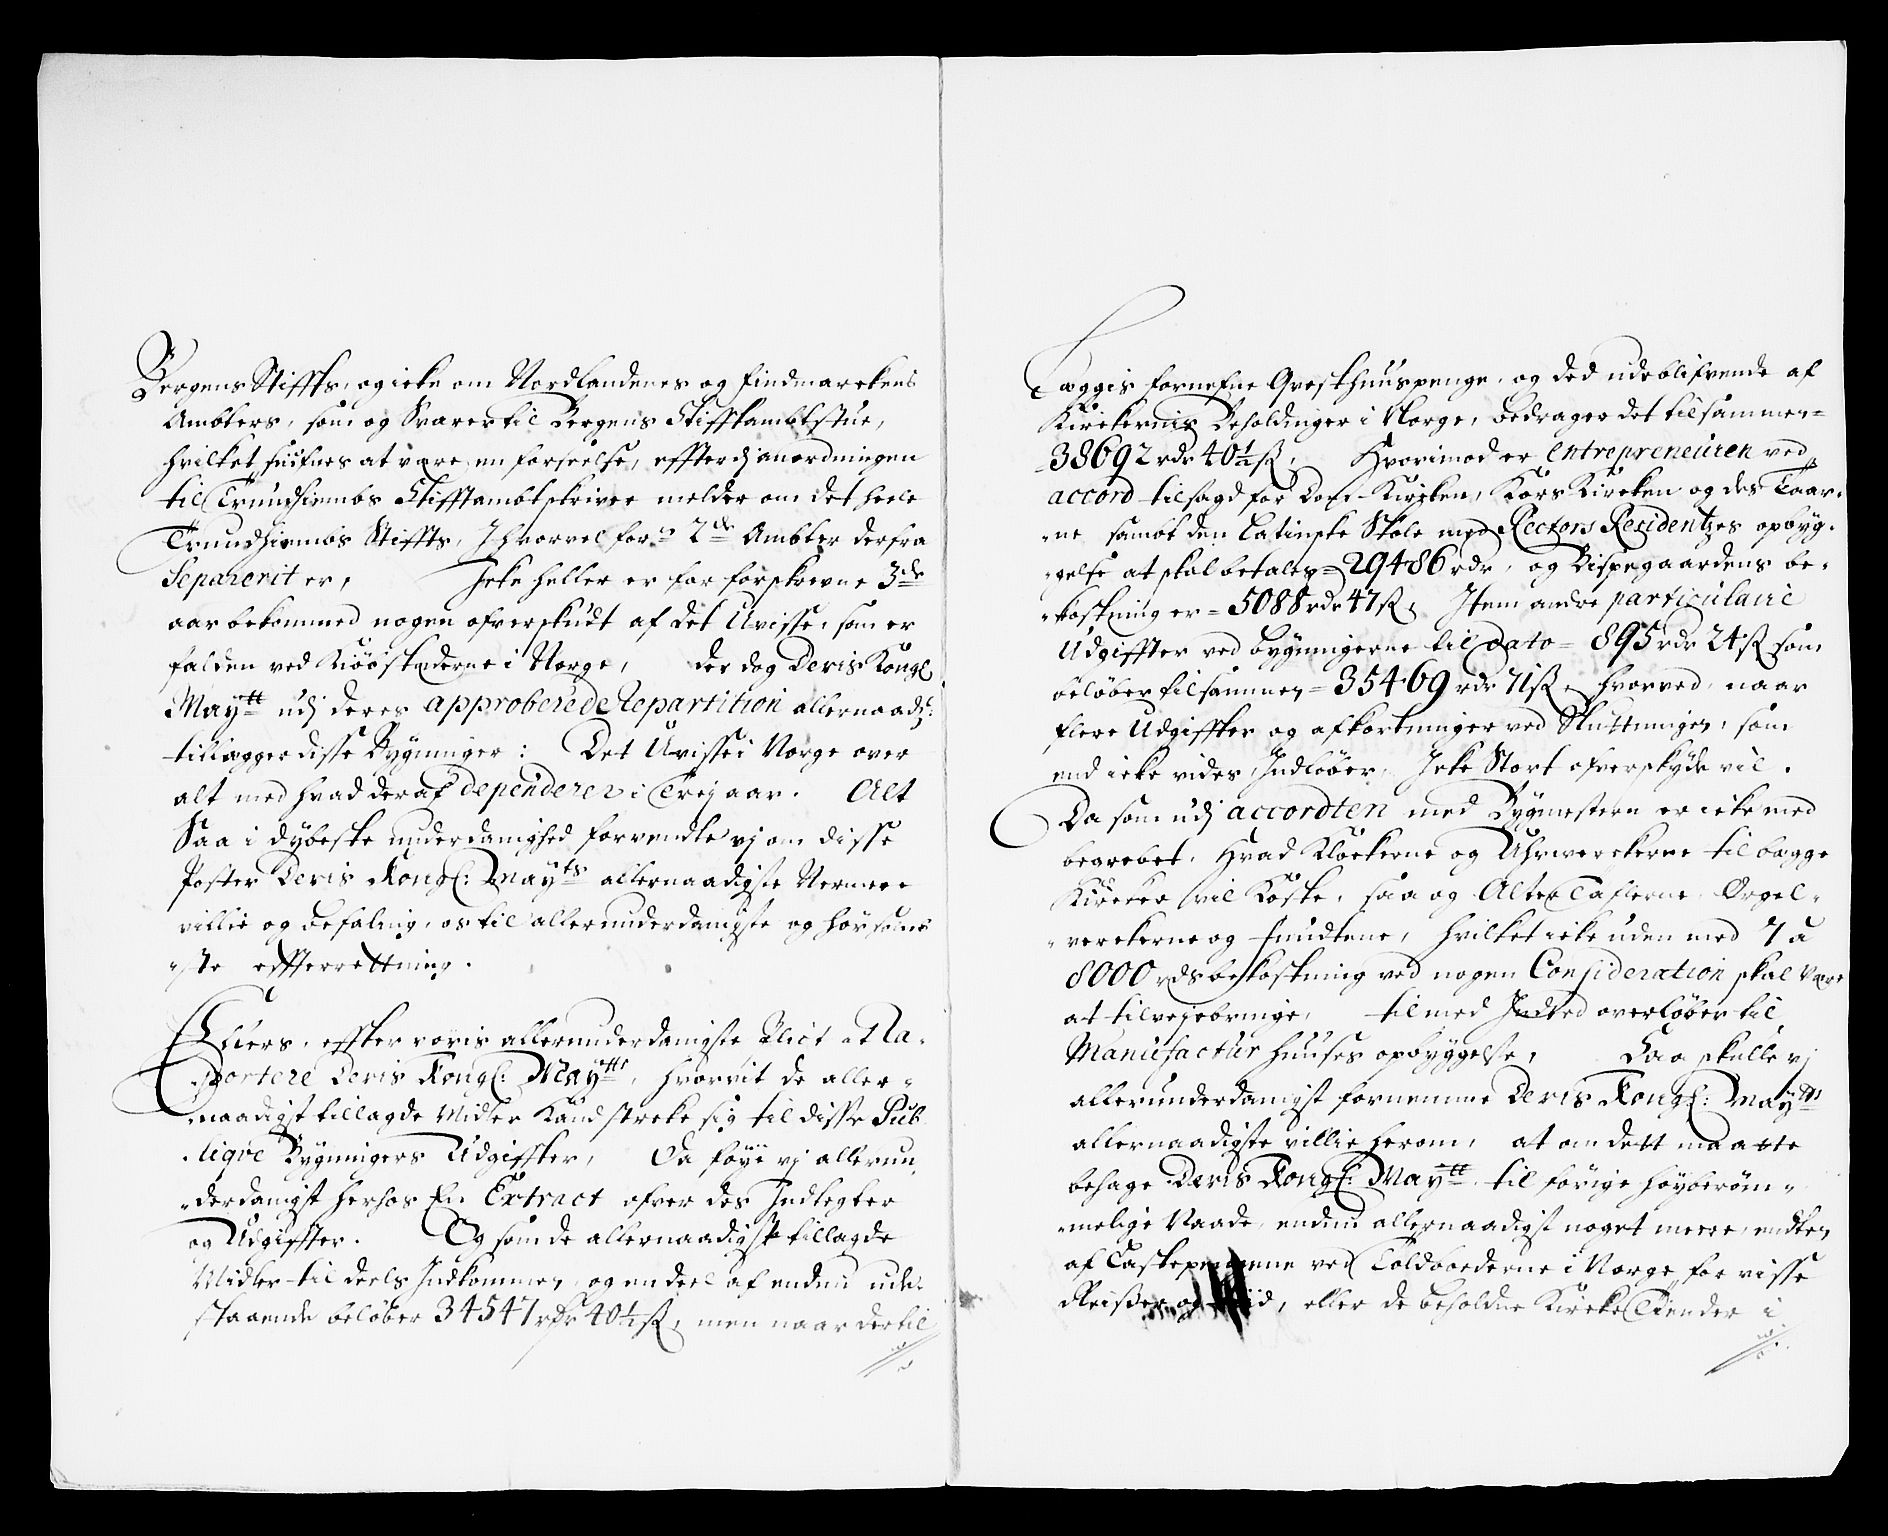 Bergens Stiffts, og icke om Nordlandenes og Findmarckens
Ambters, som og Svarer til Bergens Stifftambtstue,
hvilket siufnes at være en forseelse, effterdj anordningen
til Trundhiembs Stifftambtskriver melder om det heele
Trundhiembs Stiffts, Jhvorvel for:ne 2de Ambter derfra
Separerit er, Icke heller er for forskrevne 3de
aar bekommed nogen ofverskudt af det Uvisse, som er
falden ved Kiøbstæderne i Norge, der dog Deris Kongl.
Maytt udj deres approberede Repartition allernaadj:
tillægger disse Bygninger: Det Uvisse i Norge over
alt med hvad deraf dependerer i Trej aar. Alt
Saa i dybeste underdanighed forvendte vj om disse
Poster Deris Kongl: Mayts allernaadigste Nermere
villie og befaling, os til allerunderdanigste og hørsom-
-ste effterrettning.
Ellers, effter voris allerunderdanigste Plict at Ra-
portere Deris Kongl: Maytts, hvorvit de aller-
naadigst tillagde Midler Kand strecke sig til disse Pub-
liqve Bygningers Udgiffter, Da føye vj allerun-
-derdanigst herhos En Extract ofver des Indtegter
og Udgiffter. Og som de allernaadigst tillagde
Midler til deels Indkommen, og en deel af endnu ude-
staaende beløber 34547 rdr 40½ ß, men naar dertil
Læggis fornefne Qvesthuuspenge, og ded udeblifvende af
Kirckernis Beholdinger i Norge, bedrager det tilsammen=
38692 rdr 40½ ß, Hvorimod er Entrepreneuren ved
accord tilsagd for Dom-Kircken, Kors Kircken og des Taar-
-ne sambt den Latinske Skole med Rectors Residentzes opbyg-
-gelse at skal betales= 29486 rdr, og Bispegaardens be-
-kostning er= 5088 rdr 47 ß, Item andre particulaire
Udgiffter ved bygningerne til Dato= 895 rdr 24 ß som
beløber tilsammen= 35469 rdr 71 ß, hvorved, naar
flere Udgiffter og afkortninger ved Sluttningen, som
end icke vides, Indløber, Icke Stort ofverskyde vil.
Da som udj accordten med Bygmestern er icke med
begrebet, Hvad Klockerne og Uhrverckerne til begge
Kircker vil Koste, saa og Alter Taflerne, Orgel-
-verckerne og funtene, hvilket icke uden med 7 a
8000 rds bekostning ved nogen Consideration skal være
at tilvejebringe, til med Indted overløber til
Manufactur huuses opbyggelse, Saa skulle vj
allerunderdanigst fornemme Deris Kongl: Maytts
allernaadigste villie herom, at om dett maatte
behage Deris Kongl: Maytt til forige høyberøm-
-melige Naade, endnu allernaadigst noget meere, endten
af Lastepengene ved Toldboederne i Norge, for visse
Reißer og Tid, eller de beholdne Kircke Tiender i